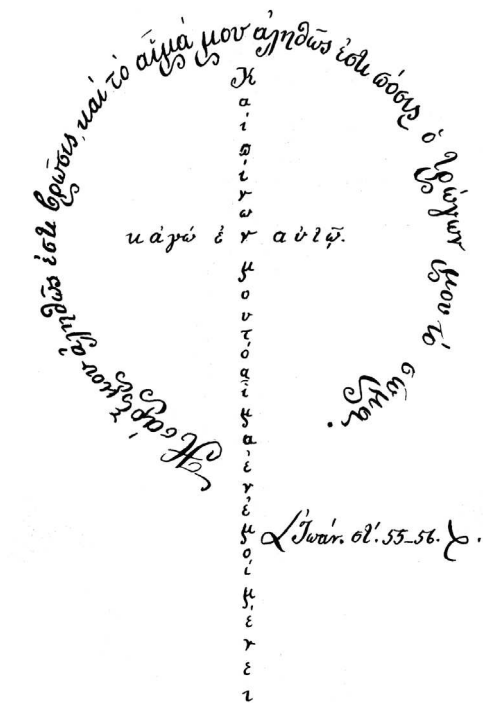 Ἡ σάρξ μου ἀληθῶς ἐστι βρῶσις, καὶ τὸ αἷμά μου ἀληθῶς ἐστι πόσις ὁ τρώγων μου τὸ σῶμα.
Καὶ πίνων μου τὸ αἷμα ἐν ἐμοὶ μένει
κἀγώ ἐν αὐτῷ.
(Ἰωάν. στ'. 55-56.).